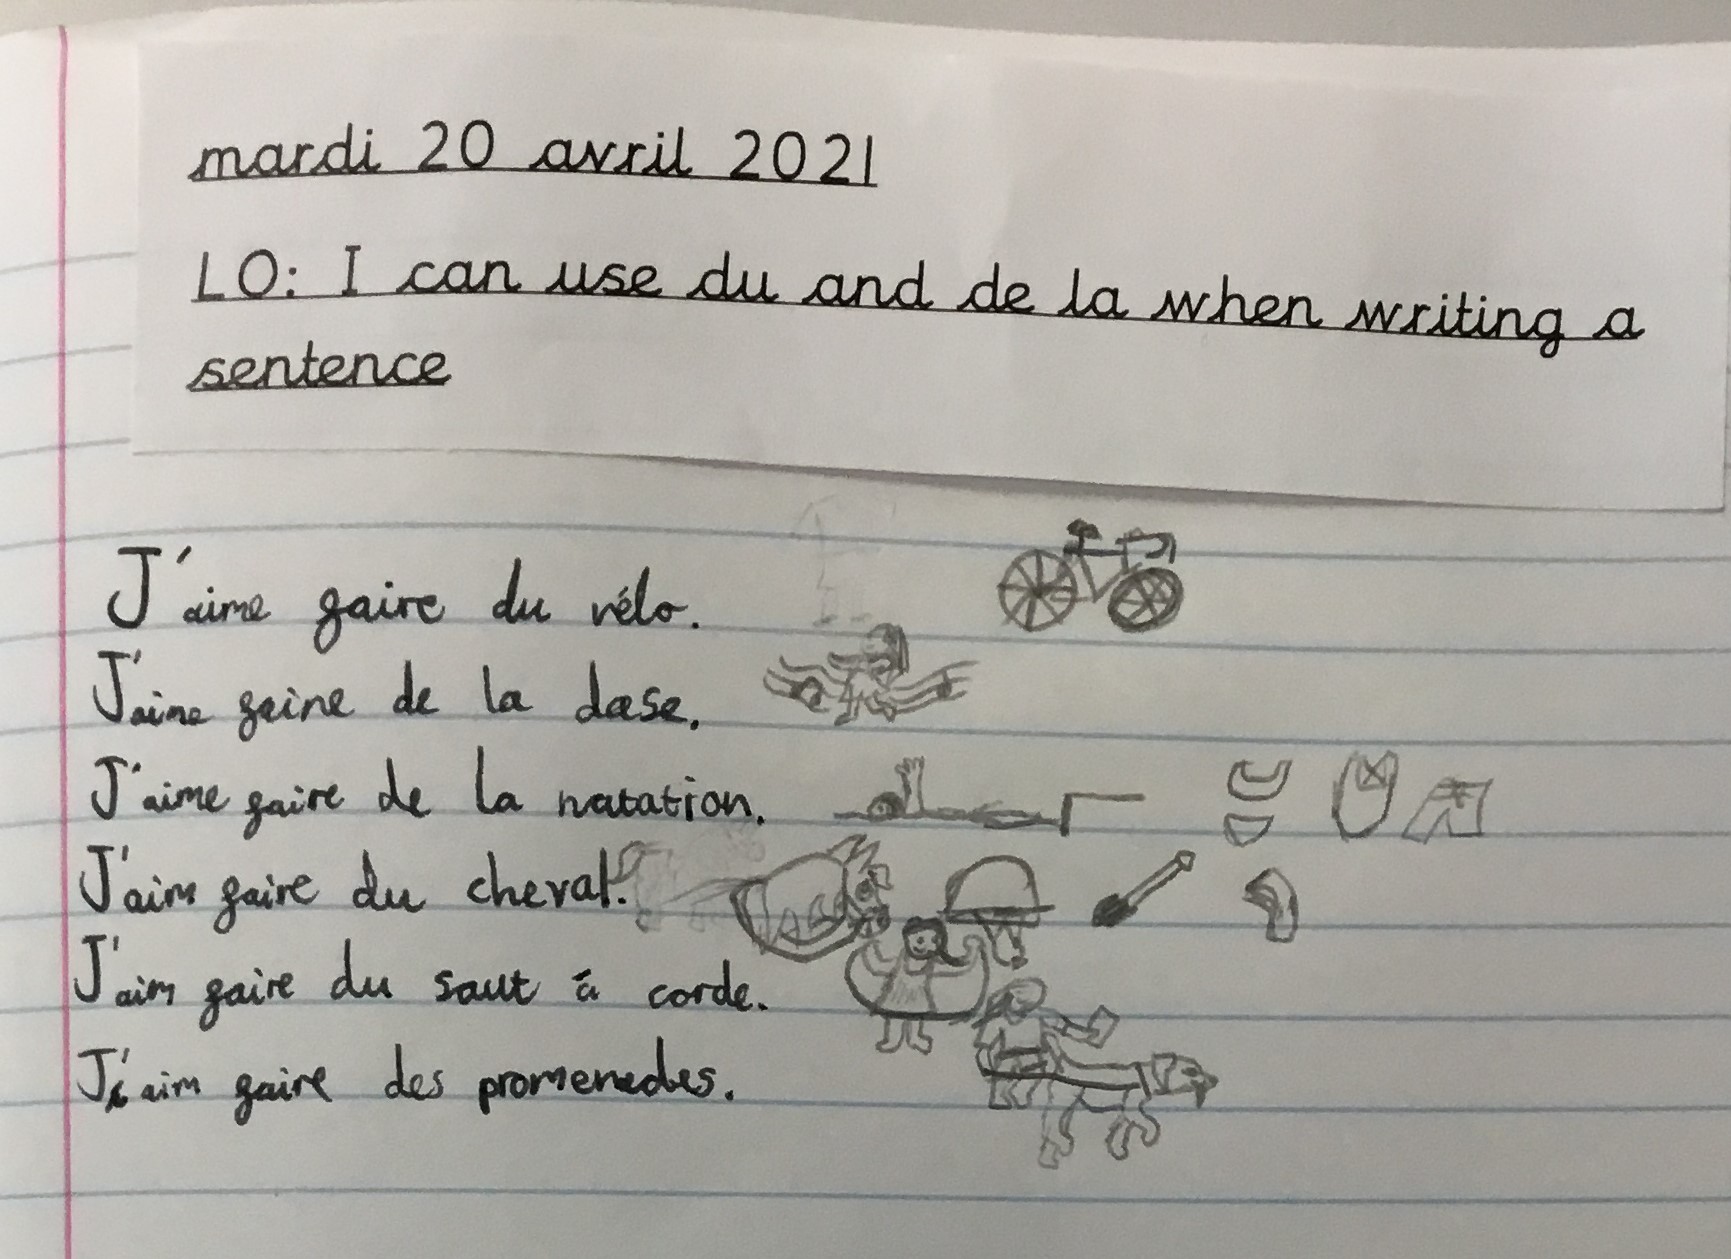 mardi 20 avril 2021
LO: I can use du and de la when writing a
sentence
J'aime gaire du vélo.
J'aime gaire de la dase.
J'aime gaire de la natation.
J'aim gaire du cheval.
J'aim gaire du saut à corde.
J'aim gaire des promenedes.